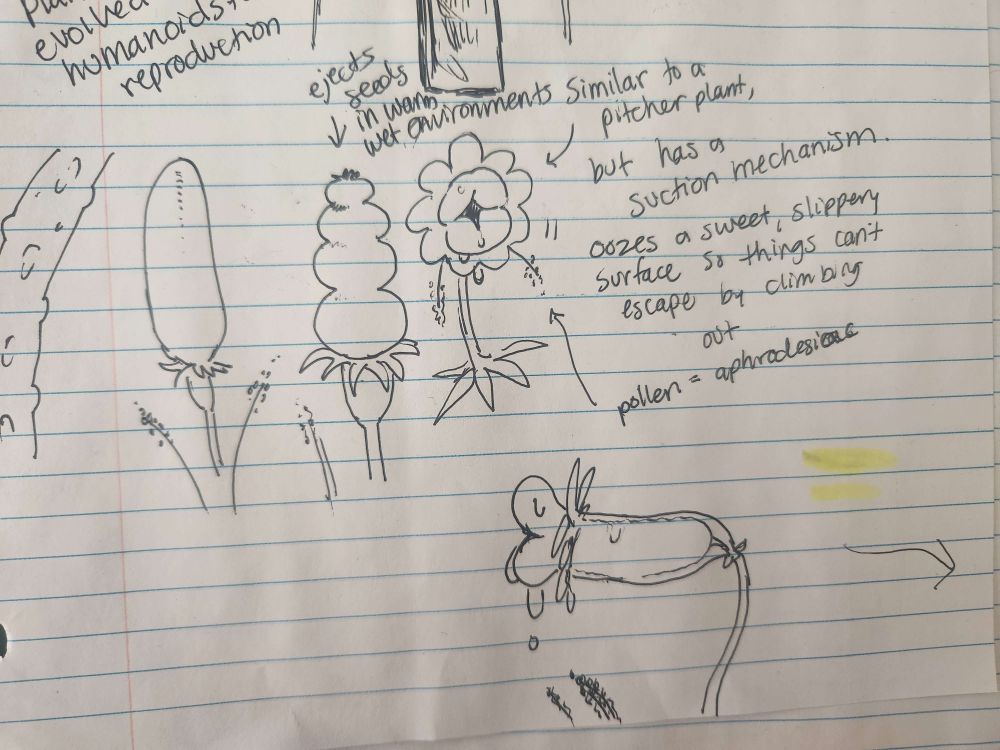 evolved
humanoids
reproduction
ejects
seeds
in warm
wet environments
Similar to a
pitcher plant,
but has a
suction mechanism.
oozes a sweet, slippery
surface so things can't
escape by climbing
out
pollen =